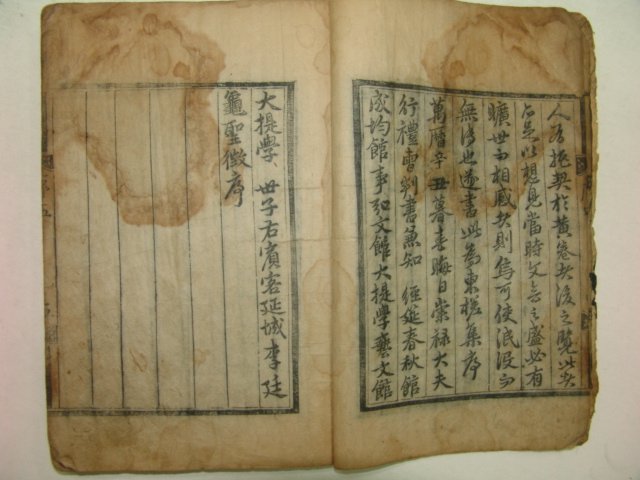 於黃卷矣後之覽此者
足以想見當時文章之盛必有
曠世而相感矣則焉可使泯没而
無傳也遂書此為東槎集序
萬曆辛丑暮春晦日崇禄大夫
行禮曹判書兼知 經筵春秋館
成均館事弘文館大提學藝文館
大提學 世子右賓客延城李廷
龜聖徵序